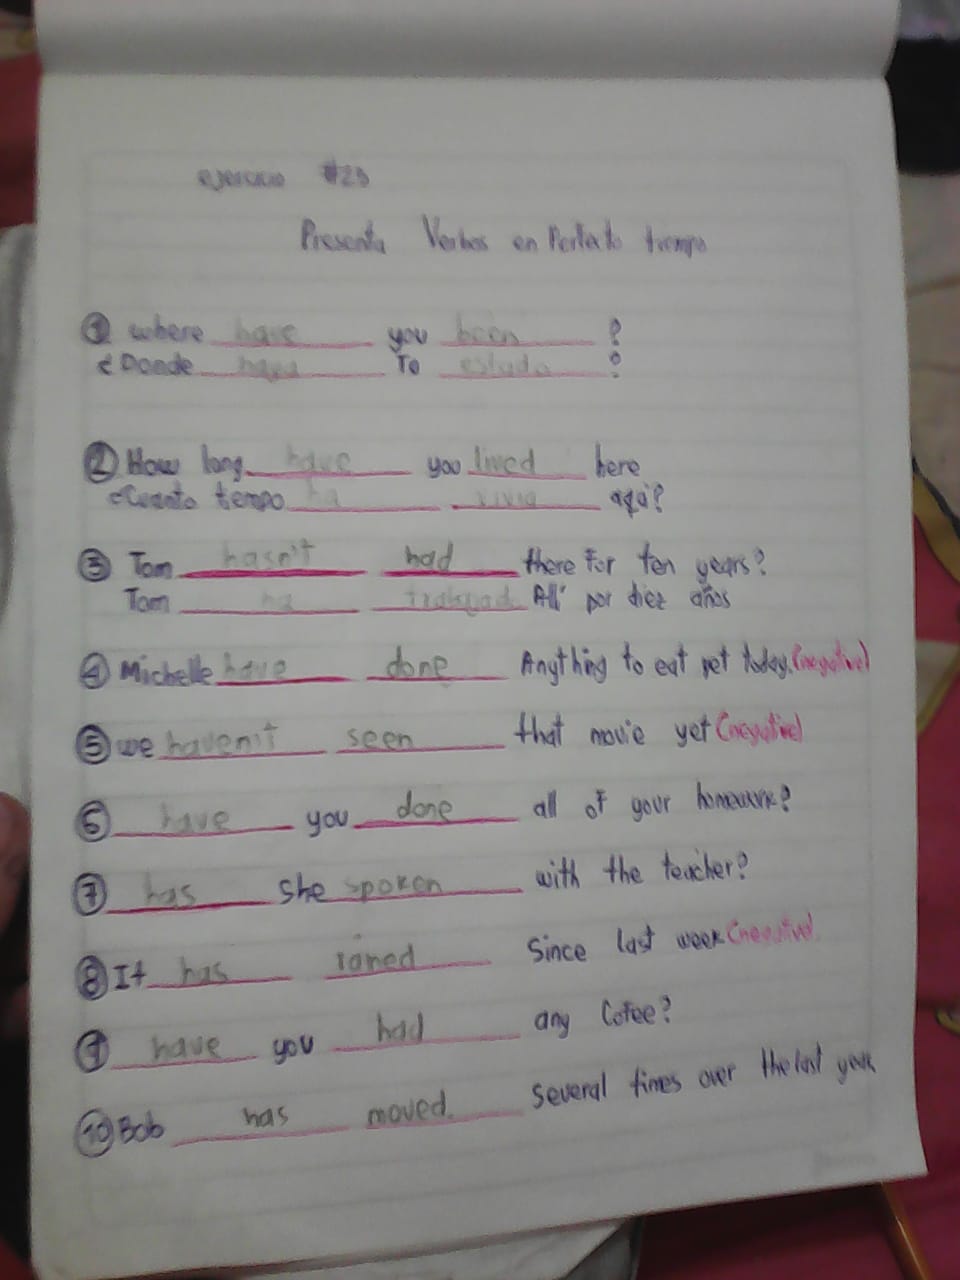 ejercicio #23
Presenta Verbos en Perfecto tiempo
① where have you been ?
¿Donde haya To estado ?
② How long have you lived here
¿Cuanto tiempo ha aqá?
③ Tom hasn't had there for ten years?
Tom ha Allí por diez años
④ Michelle have done Anything to eat yet today. (negative)
⑤ we haven't seen that movie yet (negative)
⑥ have you done all of your homework?
⑦ has she spoken with the teacher?
⑧ It has rained Since last week (negative)
⑨ have you had any Cofee?
⑩ Bob has moved. several times over the last year